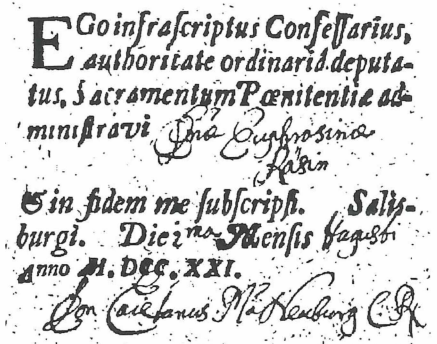 EGo infraſcriptus Confeſſarius,
authoritate ordinariâ deputa-
tus, Sacramentum Pœnitentiæ ad-
miniſtravi Euphrosinæ
& in fidem me ſubſcripſi. Salis-
burgi. Die 2ma Menſis Augusti
Anno M. DCC. XXI.
Caietanus Neuburg C. R.